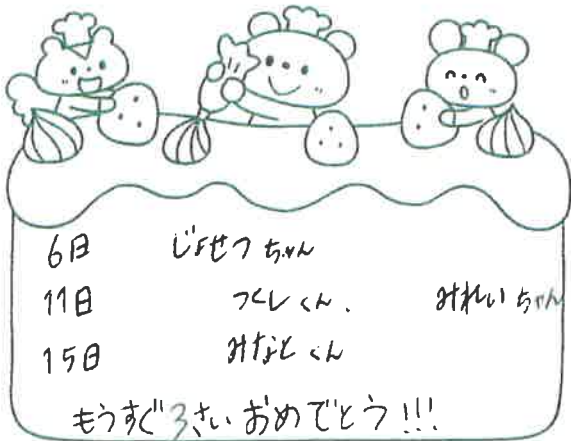 6日 じょせつちゃん
11日 つくしくん、 みれいちゃん
15日 みなとくん
もうすぐ3さいおめでとう!!!